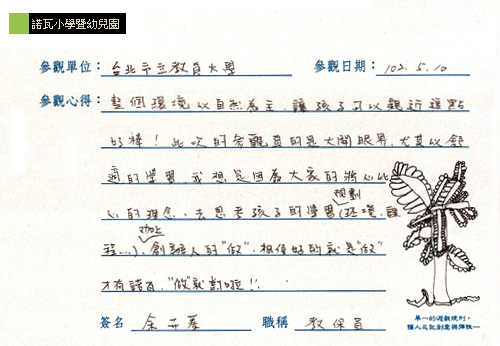 諾瓦小學暨幼兒園
參觀單位：台北市立教育大學 參觀日期：102.5.10
參觀心得：整個環境以自然為主，讓孩子可以親近這點
的棒！此次的參觀真的是大開眼界，尤其以舒
適的學習，我想是因為大家的將心比
心的理念，去思考孩子的學習規劃(環境、課
程....)，加上創辦人的"做"，相信好的就是"做"
才有諾瓦，"做"就對啦!!
單一的遊戲規則，
讓人忘記創意與彈性…
簽名 職稱 教保員